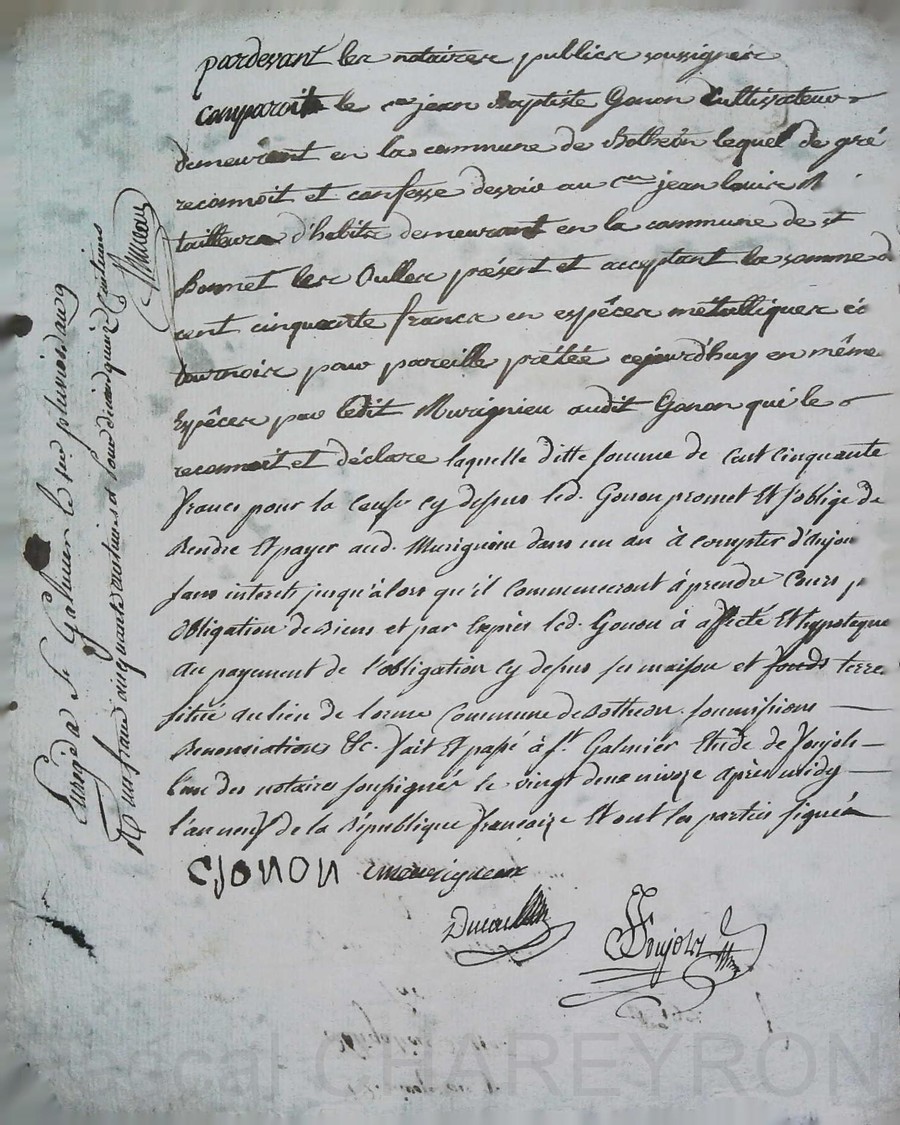 pardevant les notaires publics soussignés
comparoit le cen jean Baptiste Gonon Cultivateur
demeurant en la commune de Botheon lequel de gré
reconnoit et confesse devoir au cen jean louis M
tailleurs d'habits demeurant en la commune de st
Bonnet les Oulles présent et acceptant la somme d
cent cinquante francs en espêces métalliques
tournois pour pareille prétée cejourd'huy en même
Espêces par ledit Murignieu audit Gonon qui le
reconnoit et déclare laquelle ditte somme de Cent Cinquante
francs pour la cause cy depus led. Gonon promet Et s'oblige de
Rendre Et payer aud. Murignieu dans un an à compter d'aujou
sans interets jusqu'alors qu'il commenceront à prendre Cours p
Obligation de Biens et par Exprès led. Gonon à affecté Et hypoteque
au payement de l'obligation cy depus ses maison et fonds terre
situé au lieu de lorme Commune de Botheon. soumissions
Renonsiations &c. fait Et passé à St. Galmier Etude de Poujols
l'un des notaires soussignés le vingt deux nivose après midy
l'an neuf de la République francaise Et ont les parties signés
GONON murigneux
Poujols
Enrg à St Galmier le pluviose an 9